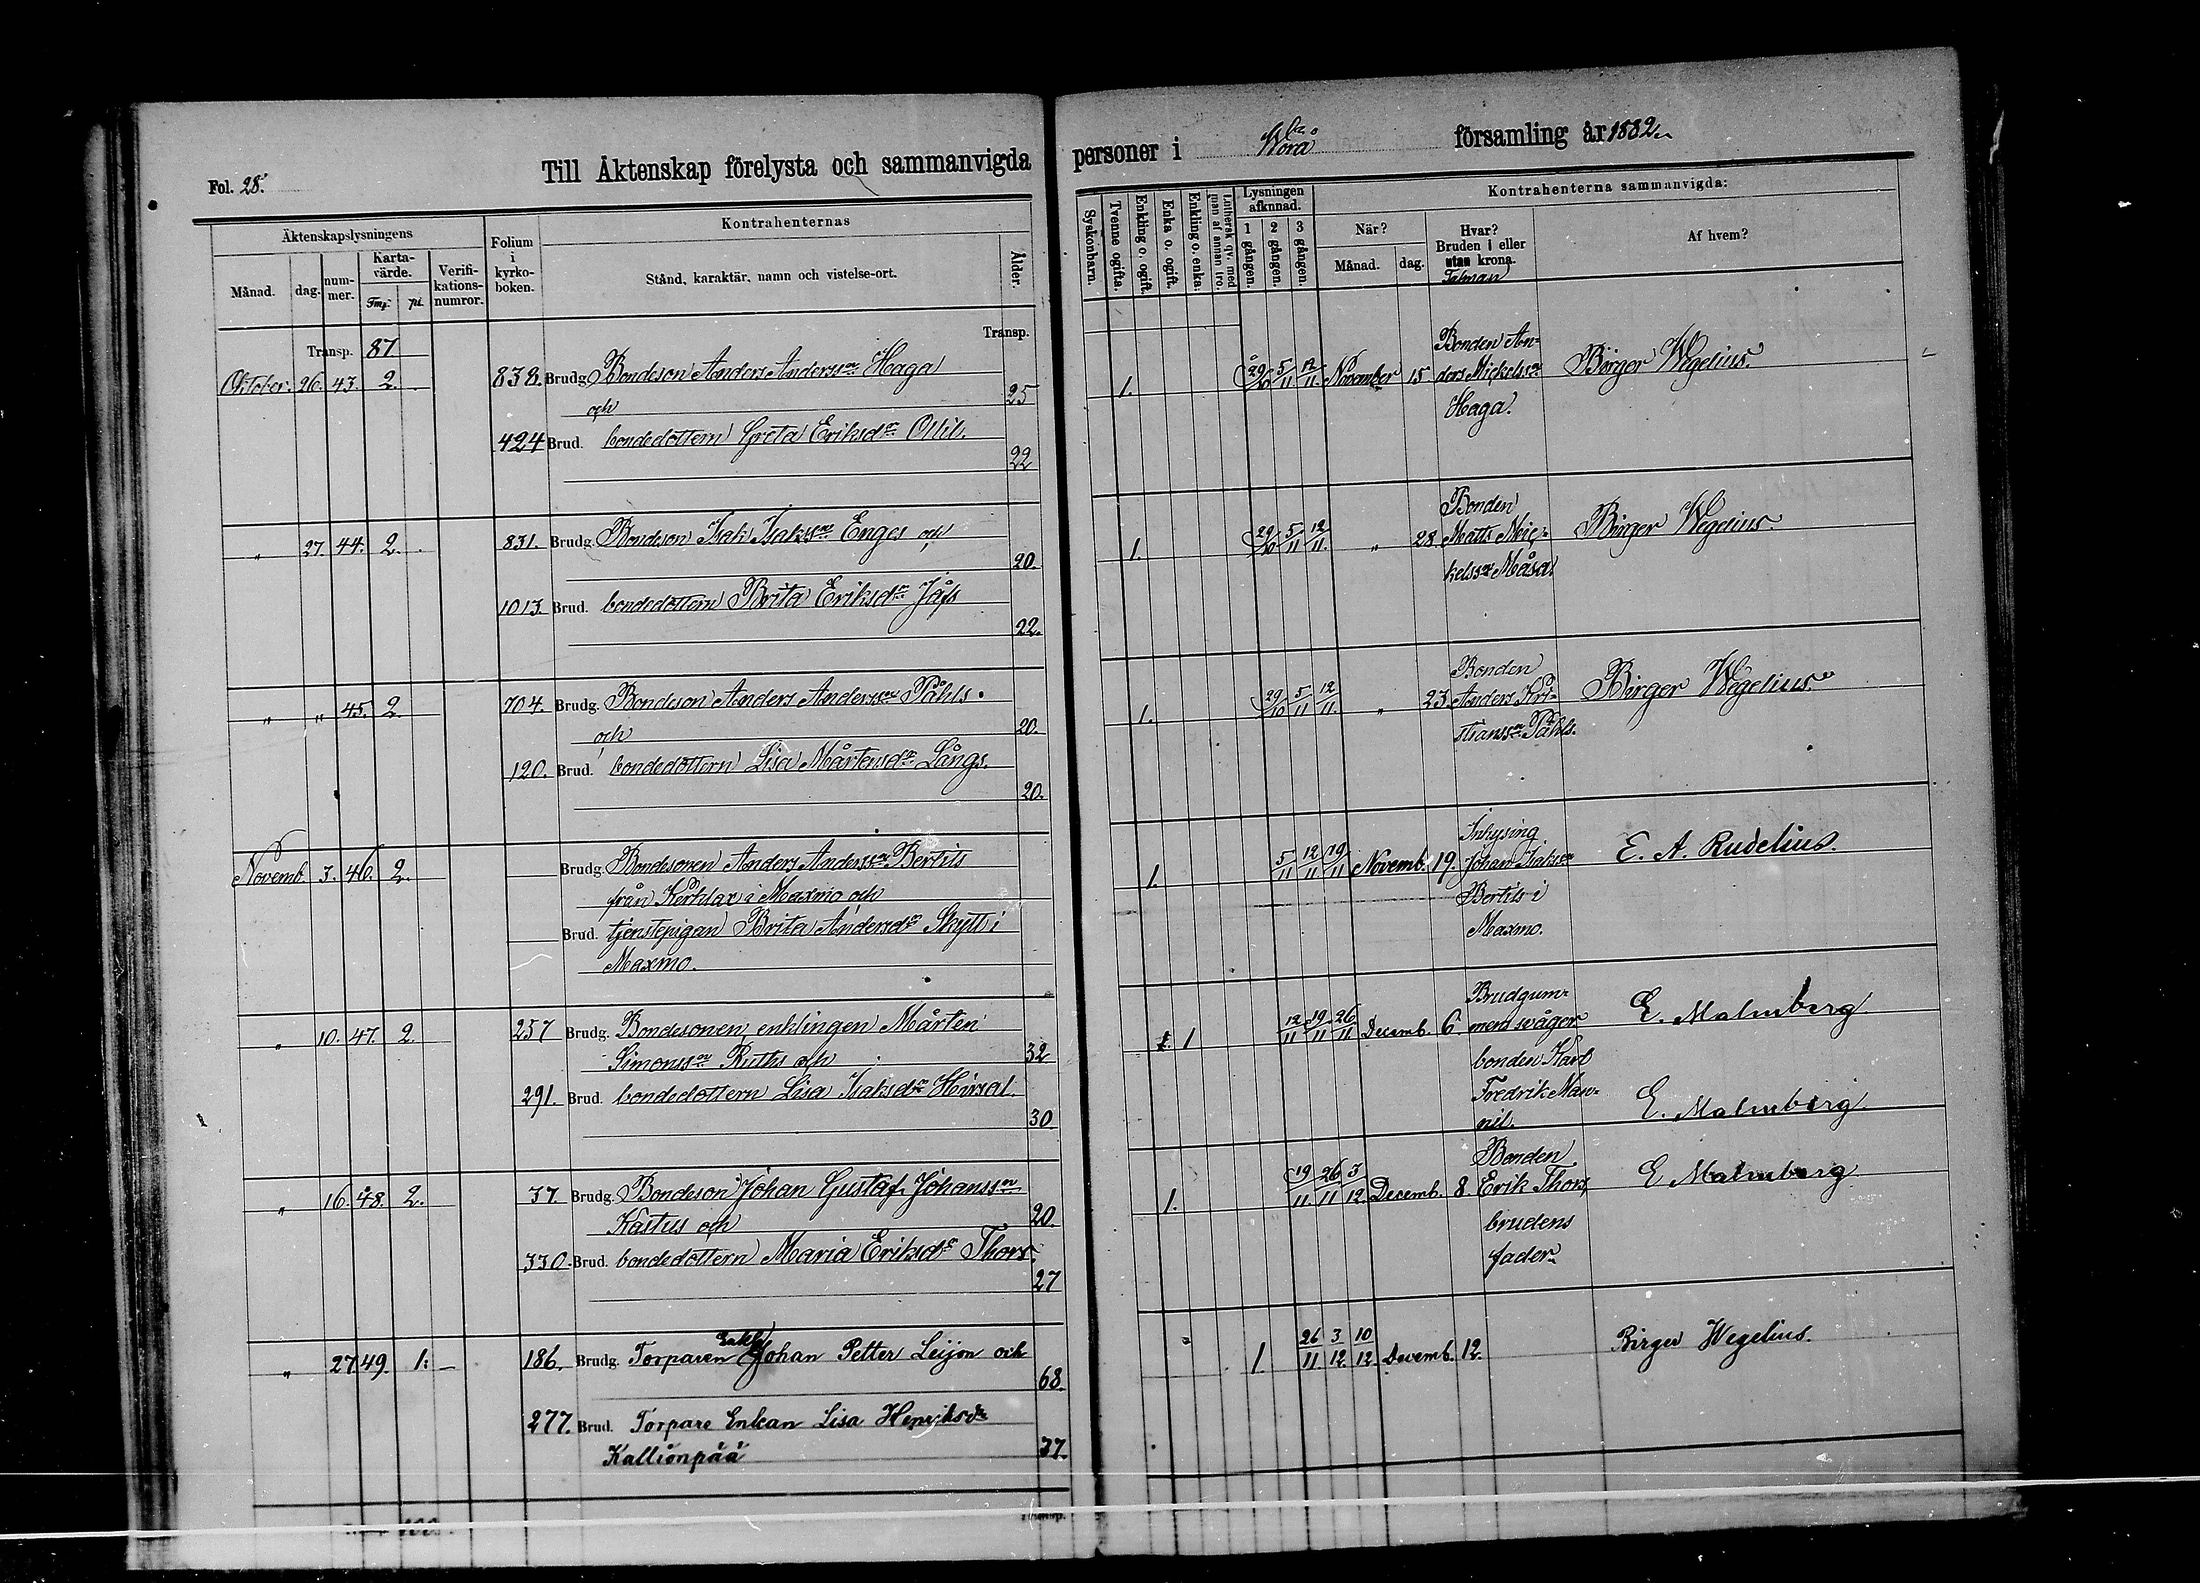 Fol. 28.
Till Äktenskap förelysta och sammanvigda
Äktenskapslysningens
Månad.
dag.
num-
mer.
Karta-
värde.
Fmg.
pi.
Verifi-
kations-
numror.
Folium
i
kyrko-
boken.
Kontrahenternas
Stånd, karaktär, namn och vistelse-ort.
Ålder.
Transp. 87
Transp.
October. 26. 43. 2. 838. Brudg. Bondeson Anders Anderss:n Haga 25
och
424 Brud. bondedottern Greta Eriksd:r Ollil. 22
" 27. 44. 2. 831. Brudg. Bondeson Isak Isakss:n Enges och 20.
1013. Brud. bondedottern Brita Eriksd:r Jåfs 22.
" " 45. 2. 704. Brudg. Bondeson Anders Anderss:n Påhls. 20.
och
120. Brud. bondedottern Lisa Mårtensd:r Långs. 20.
Novemb. 3. 46. 2. Brudg. Bondesonen Anders Anderss:n Bertils
från Kerklax i Maxmo och
Brud. tjenstepigan Brita Andersd:r Skytt i
Maxmo.
" 10. 47. 2. 257 Brudg. Bondesonen, enklingen Mårten
Simonss:n Ruths och 32
291. Brud. bondedottern Lisa Isaksd:r Hirsal. 30
" 16. 48. 2. 37. Brudg. Bondeson Johan Gustaf Johanss:n
Kastus och 20.
330. Brud. bondedottern Maria Eriksd:r Thors. 27
" 27 49. 1. — 186. Brudg. Torparen Enkl. Johan Petter Leijon och 68.
277. Brud. Torpare Enkan Lisa Henriksdr
Kallionpää 37.
Transp.
personer i Wörå församling år 1882.
Syskonbarn.
Tvenne ogifta.
Enkling o. ogift.
Enka o. ogift.
Enkling o. enka.
Luthersk qv. med
man af annan tro.
Lysningen
afkunnad.
1 gången.
2 gången.
3 gången.
Kontrahenterna sammanvigda:
När?
Månad.
dag.
Hvar?
Bruden i eller
utan krona.
Talman
Af hvem?
1. 29/10 5/11 12/11. November 15 Bonden An-
ders Mickelss:n
Haga. Birger Wegelius.
1. 29/10 5/11 12/11. " 28 Bonden
Matts Mic-
kelss:n Måsa. Birger Wegelius
1. 29/10 5/11 12/11. " 23. Bonden
Anders Kri-
stianss:n Påhls. Birger Wegelius.
1. 5/11 12/11 19/11 Novemb. 19. Inhysing
Johan Isakss:n
Bertils i
Maxmo. E. A. Rudelius.
1 12/11 19/11 26/11. Decemb. 6. Brudgum-
mens svåger
bonden Karl
Fredrik Man-
nil. E. Malmberg
E. Malmberg.
1. 19/11. 26/11 3/12 Decemb. 8. Bonden
Erik Thors,
brudens
fader. E Malmberg
1 26/11 3/12. 10/12. Decemb. 12. Birger Wegelius.